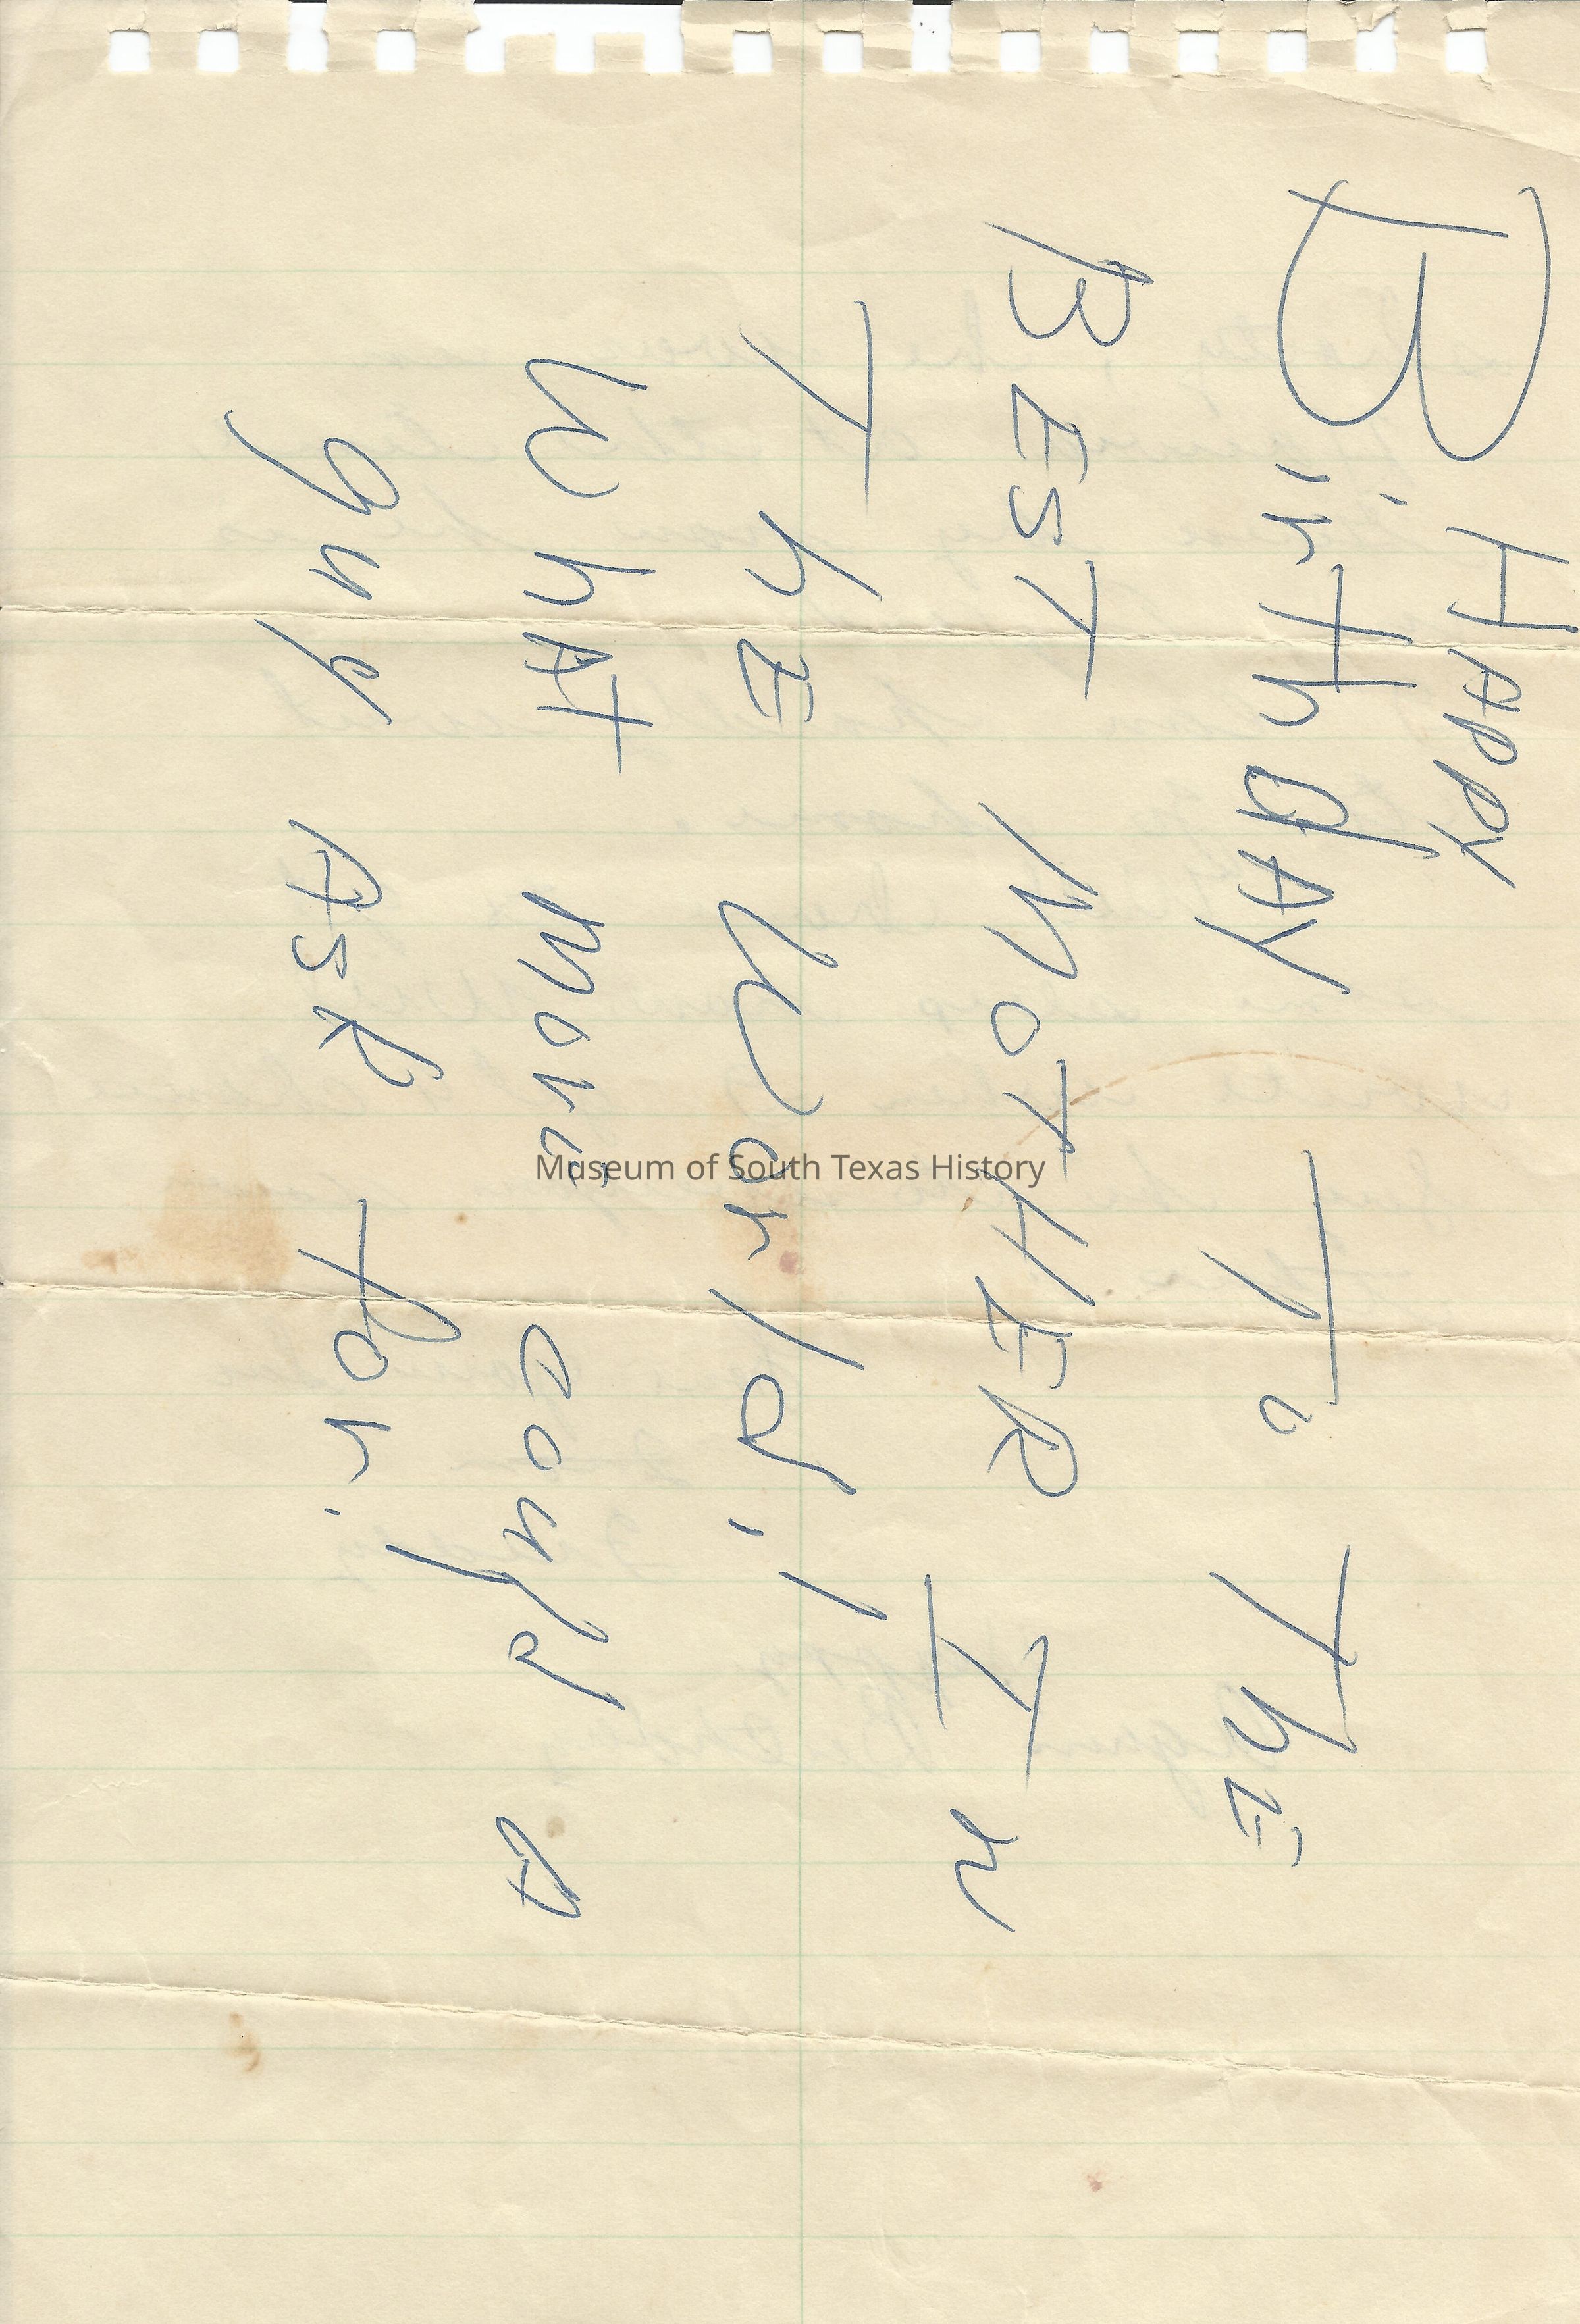 HAPPY
BirthdAY To ThE
BEST MOTHER In
ThE World!
WhAT MorE Could A
guy ASK for.
Museum of South Texas History